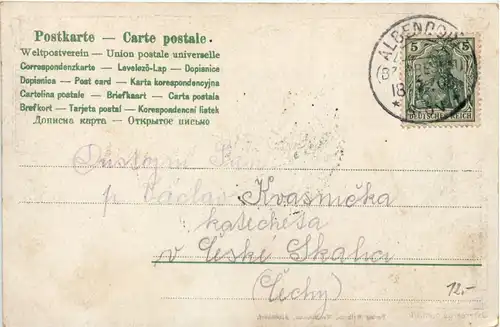 Postkarte — Carte postale
Weltpostverein — Union postale universelle
Correspondenzkarte — Levelező-Lap — Dopisnice
Dopisnica — Post card — Karta korespondencyjna
Cartolina postale — Briefkaart — Carta postala
Brefkort — Tarjeta postal — Korespondencni listek
Дописна карта — Открытое письмо
ALBENDORF
18
5 5
DEUTSCHES REICH
p. Václav Kvasnička
katecheta
v České Skalici
(Čechy)
12.-